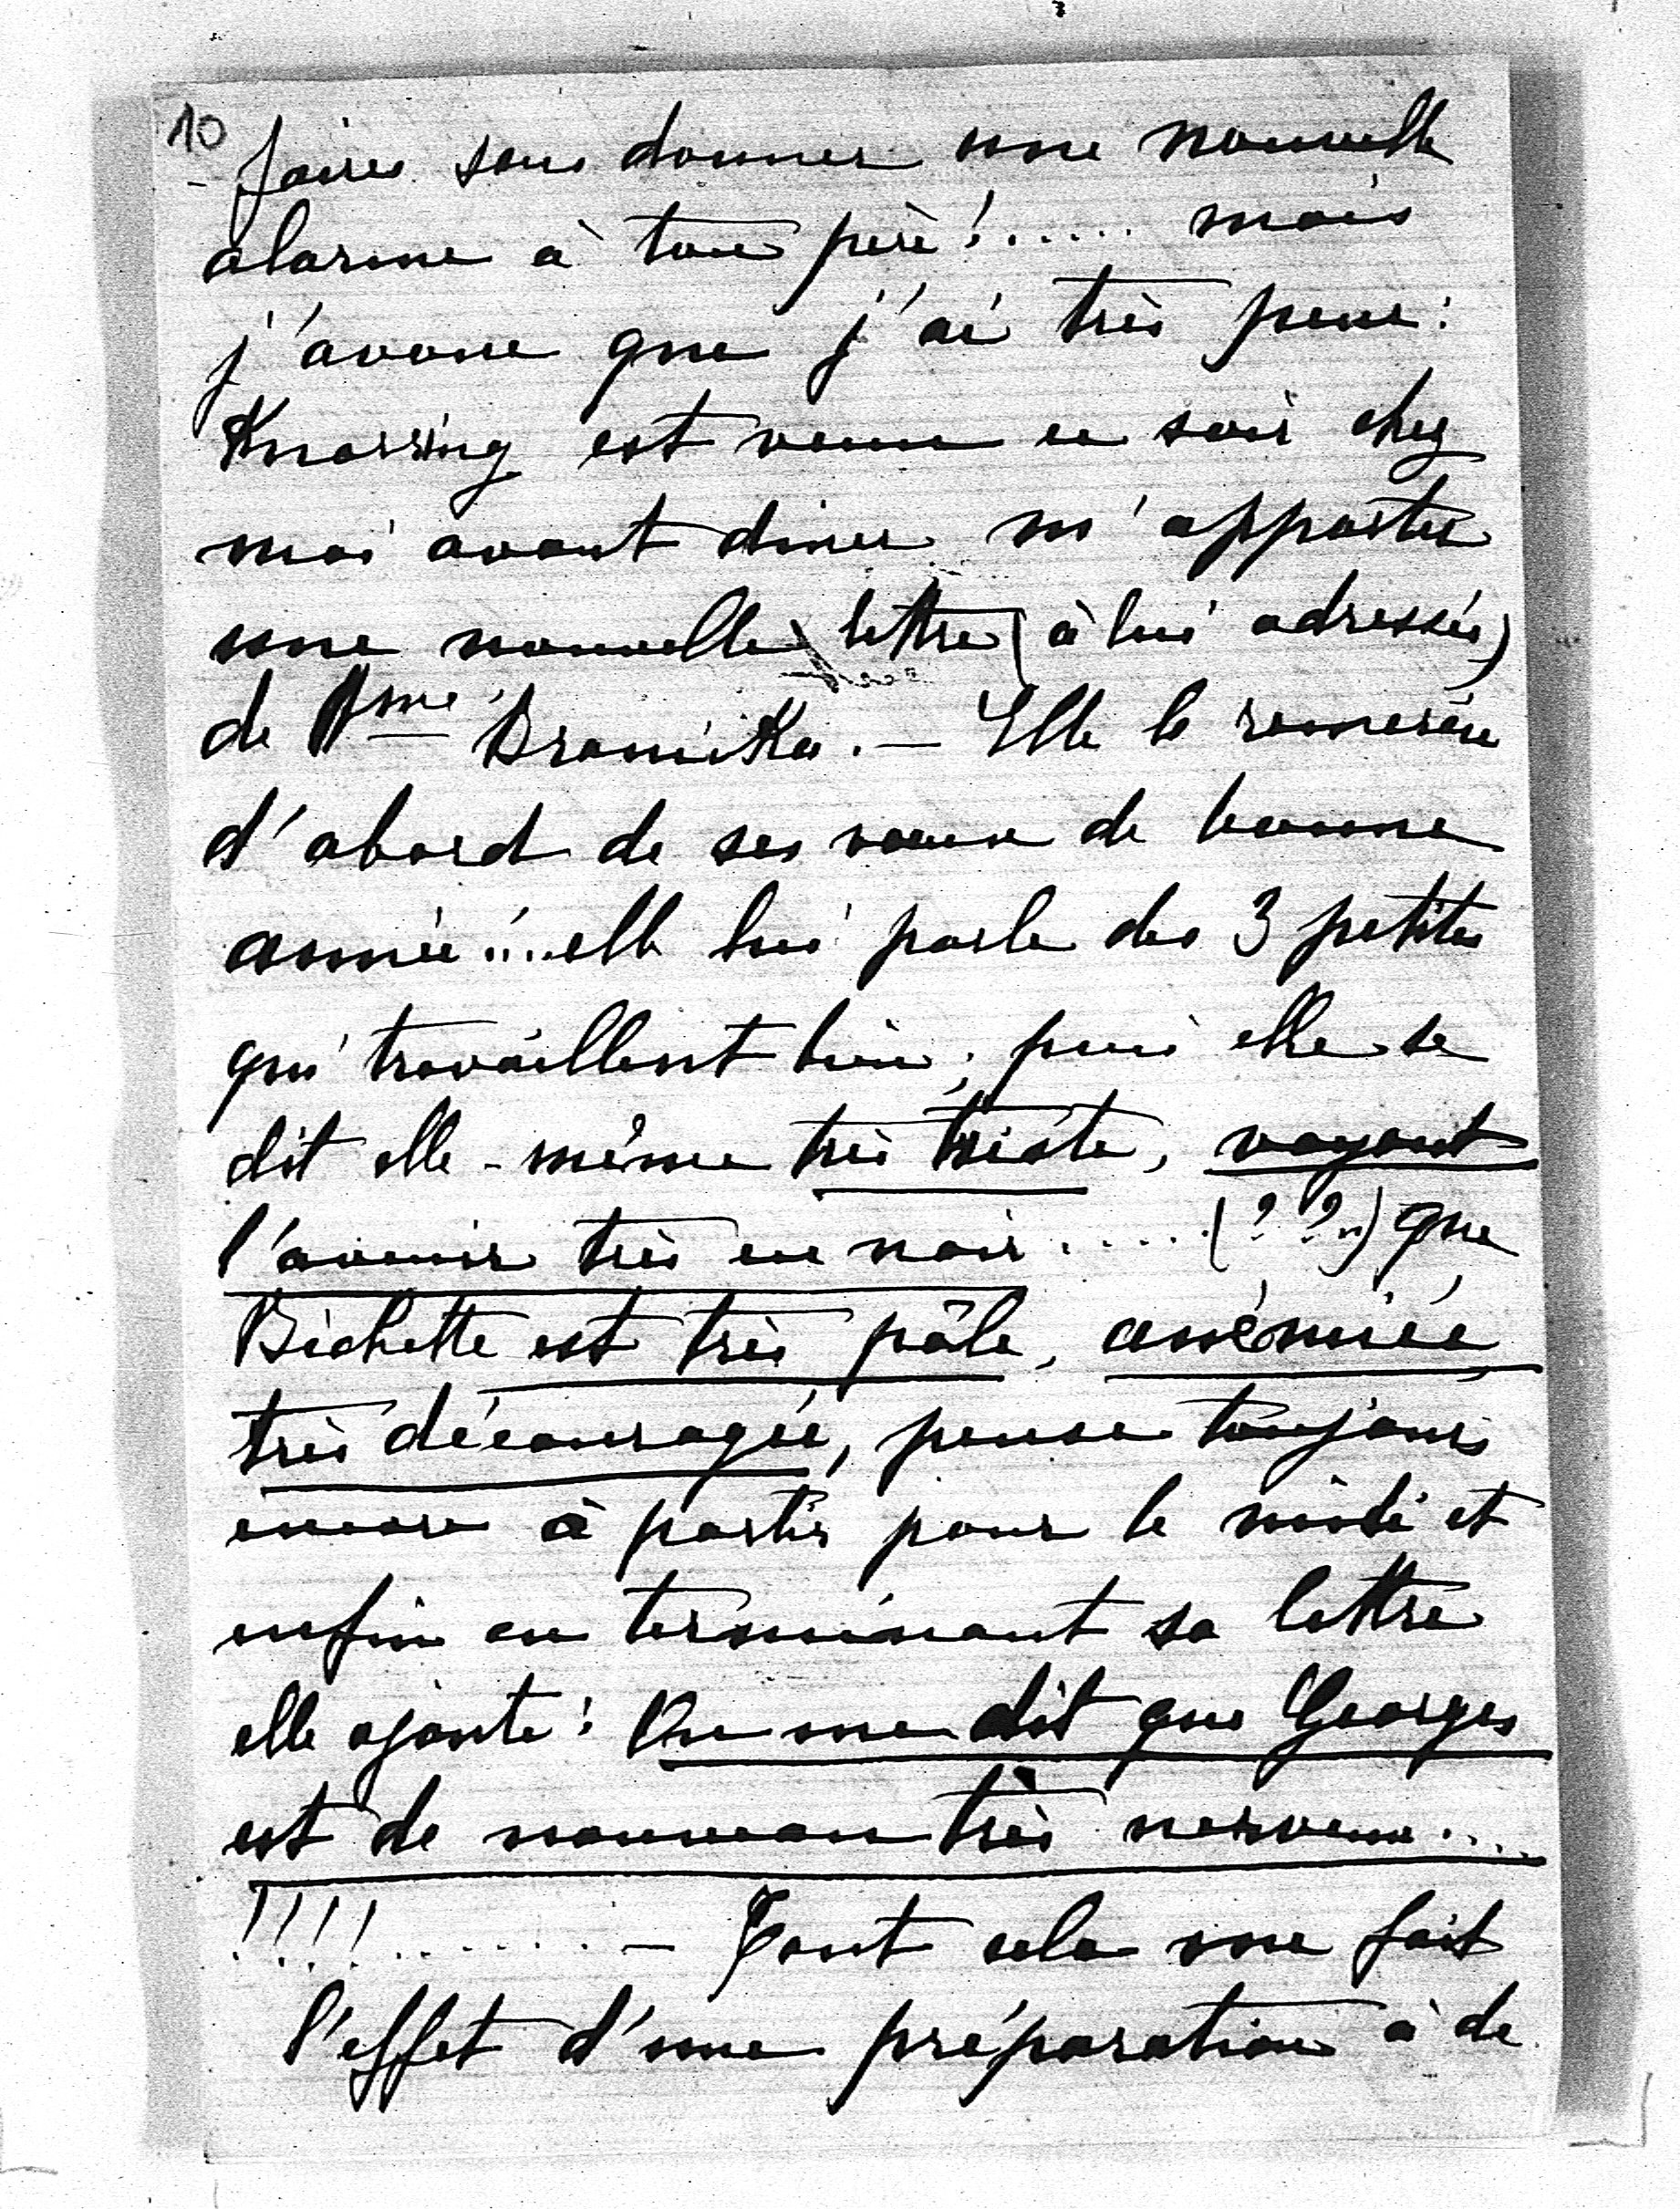 10
- faire sans donner une nouvelle
alarme à ton père!..... mais
j'avoue que j'ai très peur:
Knorring est venu ce soir chez
moi avant diner m'apporter
une nouvelle lettre (à lui adressée)
de Mme Bromirka. — Elle le remercie
d'abord de ses vœux de bonne
année!... elle lui parle des 3 petites
qui travaillent bien; puis elle se
dit elle-même très triste, voyant
l'avenir très en noir.....(??..) que
Bichette est très pâle, anémiée,
très découragée, pense toujours
encore à partir pour le midi et
enfin en terminant sa lettre
elle ajoute: On me dit que Georges
est de nouveau très nerveux...
!!!!....... — Tout cela me fait
l'effet d'une préparation à de